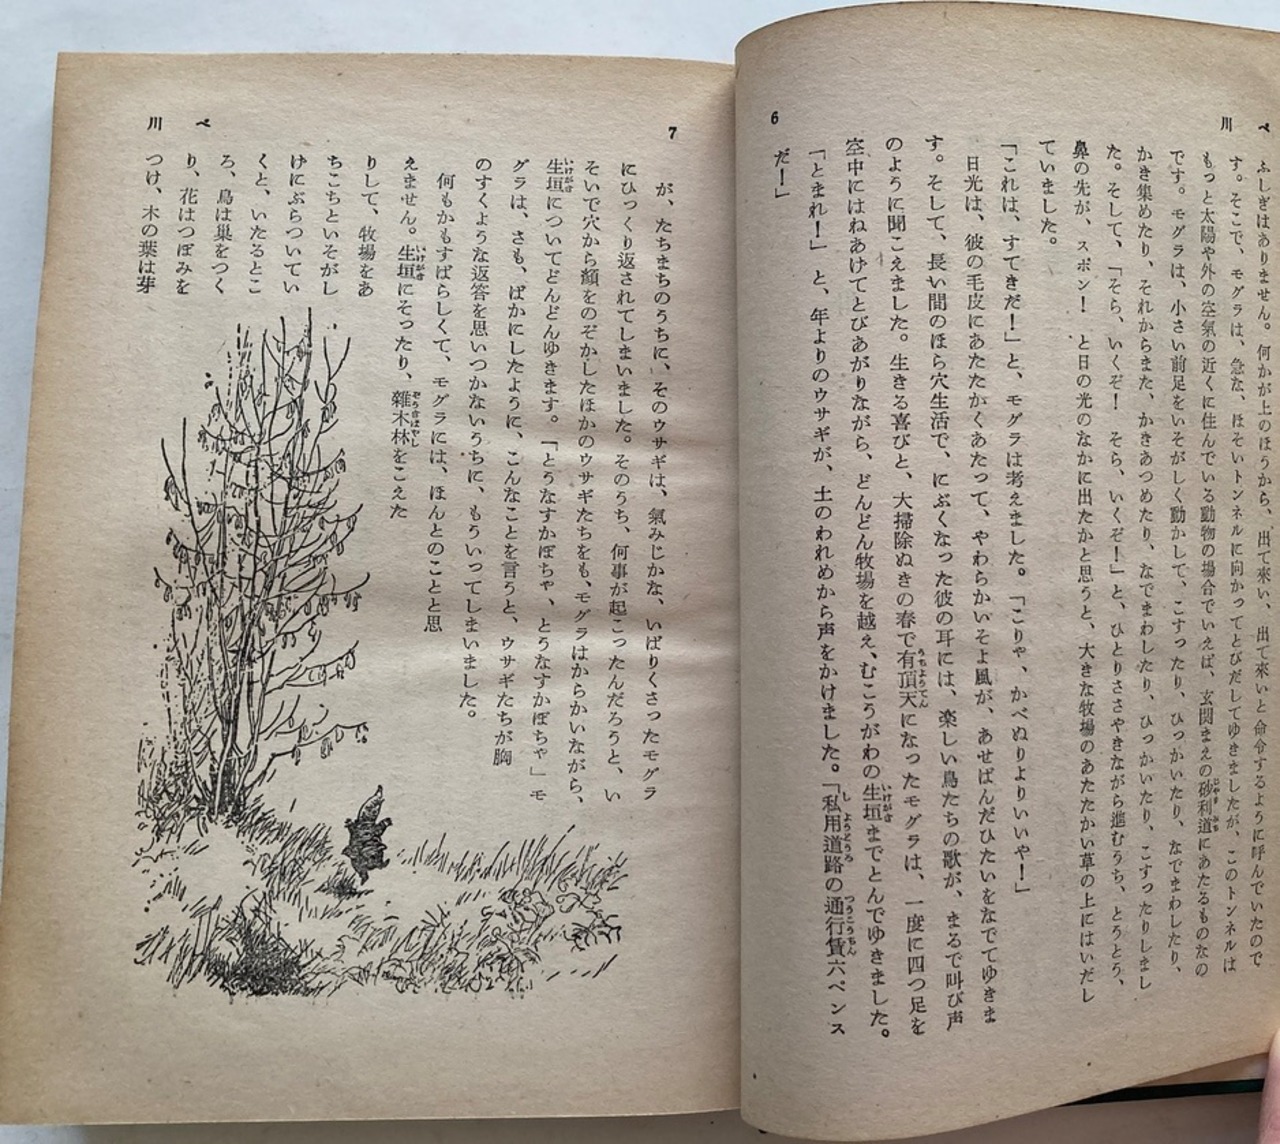 川べ
6
ふしぎはありません。何かが上のほうから、出て來い、出て來いと命令するように呼んでいたので
す。そこで、モグラは、急な、ほそいトンネルに向かってとびだしてゆきましたが、このトンネルは
もっと太陽や外の空氣の近くに住んでいる動物の場合でいえば、玄関まえの砂利道にあたるものなの
です。モグラは、小さい前足をいそがしく動かして、こすったり、ひっかいたり、なでまわしたり、
かき集めたり、それからまた、かきあつめたり、なでまわしたり、ひっかいたり、こすったりしまし
た。そして、「そら、いくぞ！　そら、いくぞ！」と、ひとりささやきながら進むうち、とうとう、
鼻の先が、スポン！　と日の光のなかに出たかと思うと、大きな牧場のあたたかい草の上にはいだし
ていました。
「これは、すてきだ！」と、モグラは考えました。「こりゃ、かべぬりよりいいや！」
日光は、彼の毛皮にあたたかくあたって、やわらかいそよ風が、あせばんだひたいをなでてゆきま
す。そして、長い間のほら穴生活で、にぶくなった彼の耳には、楽しい鳥たちの歌が、まるで叫び声
のように聞こえました。生きる喜びと、大掃除ぬきの春で有頂天になったモグラは、一度に四つ足を
空中にはねあげてとびあがりながら、どんどん牧場を越え、むこうがわの生垣までとんでゆきました。
「とまれ！」　と、年よりのウサギが、土のわれめから声をかけました。「私用道路の通行賃六ペンス
だ！」
川べ
7
が、たちまちのうちに、そのウサギは、氣みじかな、いばりくさったモグラ
にひっくり返されてしまいました。そのうち、何事が起こったんだろうと、い
そいで穴から顔をのぞかしたほかのウサギたちをも、モグラはからかいながら、
生垣についてどんどんゆきます。「とうなすかぼちゃ、とうなすかぼちゃ」モ
グラは、さも、ばかにしたように、こんなことを言うと、ウサギたちが胸
のすくような返答を思いつかないうちに、もういってしまいました。
何もかもすばらしくて、モグラには、ほんとのことと思
えません。生垣にそったり、雜木林をこえた
りして、牧場をあ
ちこちといそがし
けにぶらついてい
くと、いたるとこ
ろ、鳥は巣をつく
り、花はつぼみを
つけ、木の葉は芽